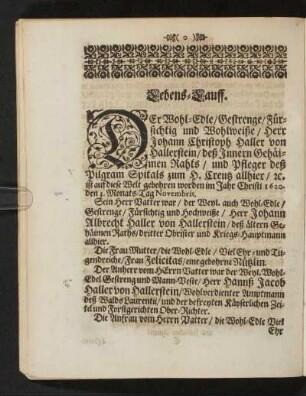 ( o )
Lebens-Lauff.
DEr Wohl-Edle/Gestrenge/Für-
sichtig und Wohlweiße/Herr
Johann Christoph Haller von
Hallerstein/deß Innern Gehäi-
men Rahts/ und Pfleger deß
Pilgram Spitals zum H. Creutz allhier/ ꝛc.
ist auf diese Welt gebohren worden im Jahr Christi 1620.
den 3. Monats-Tag Novembris.
Sein Herr Vatter war/ der Weyl. auch Wohl-Edle/
Gestrenge/Fürsichtig und Hochweiße/ Herr Johann
Albrecht Haller von Hallerstein/ deß ältern Ge-
häimen Raths/dritter Obrister und Kriegs-Hauptmann
allhier.
Die Frau Mutter/die Wohl-Edle/ Viel Ehr- und Tu-
gendreiche/Frau Felicitas/eine gebohrne Nützlin.
Der Anherr vom HErrn Vatter war der Weyl. Wohl-
Edel Gestreng und Mann-Veste/ Herr Hannß Jacob
Haller von Hallerstein/Wohlverdienter Amptmann
deß Walds Laurentii/und der befreyten Käyserlichen Zei-
tel und Forstgerichten Ober-Richter.
Die Anfrau vom Herrn Vatter/ die Wohl-Edle Viel
Ehr